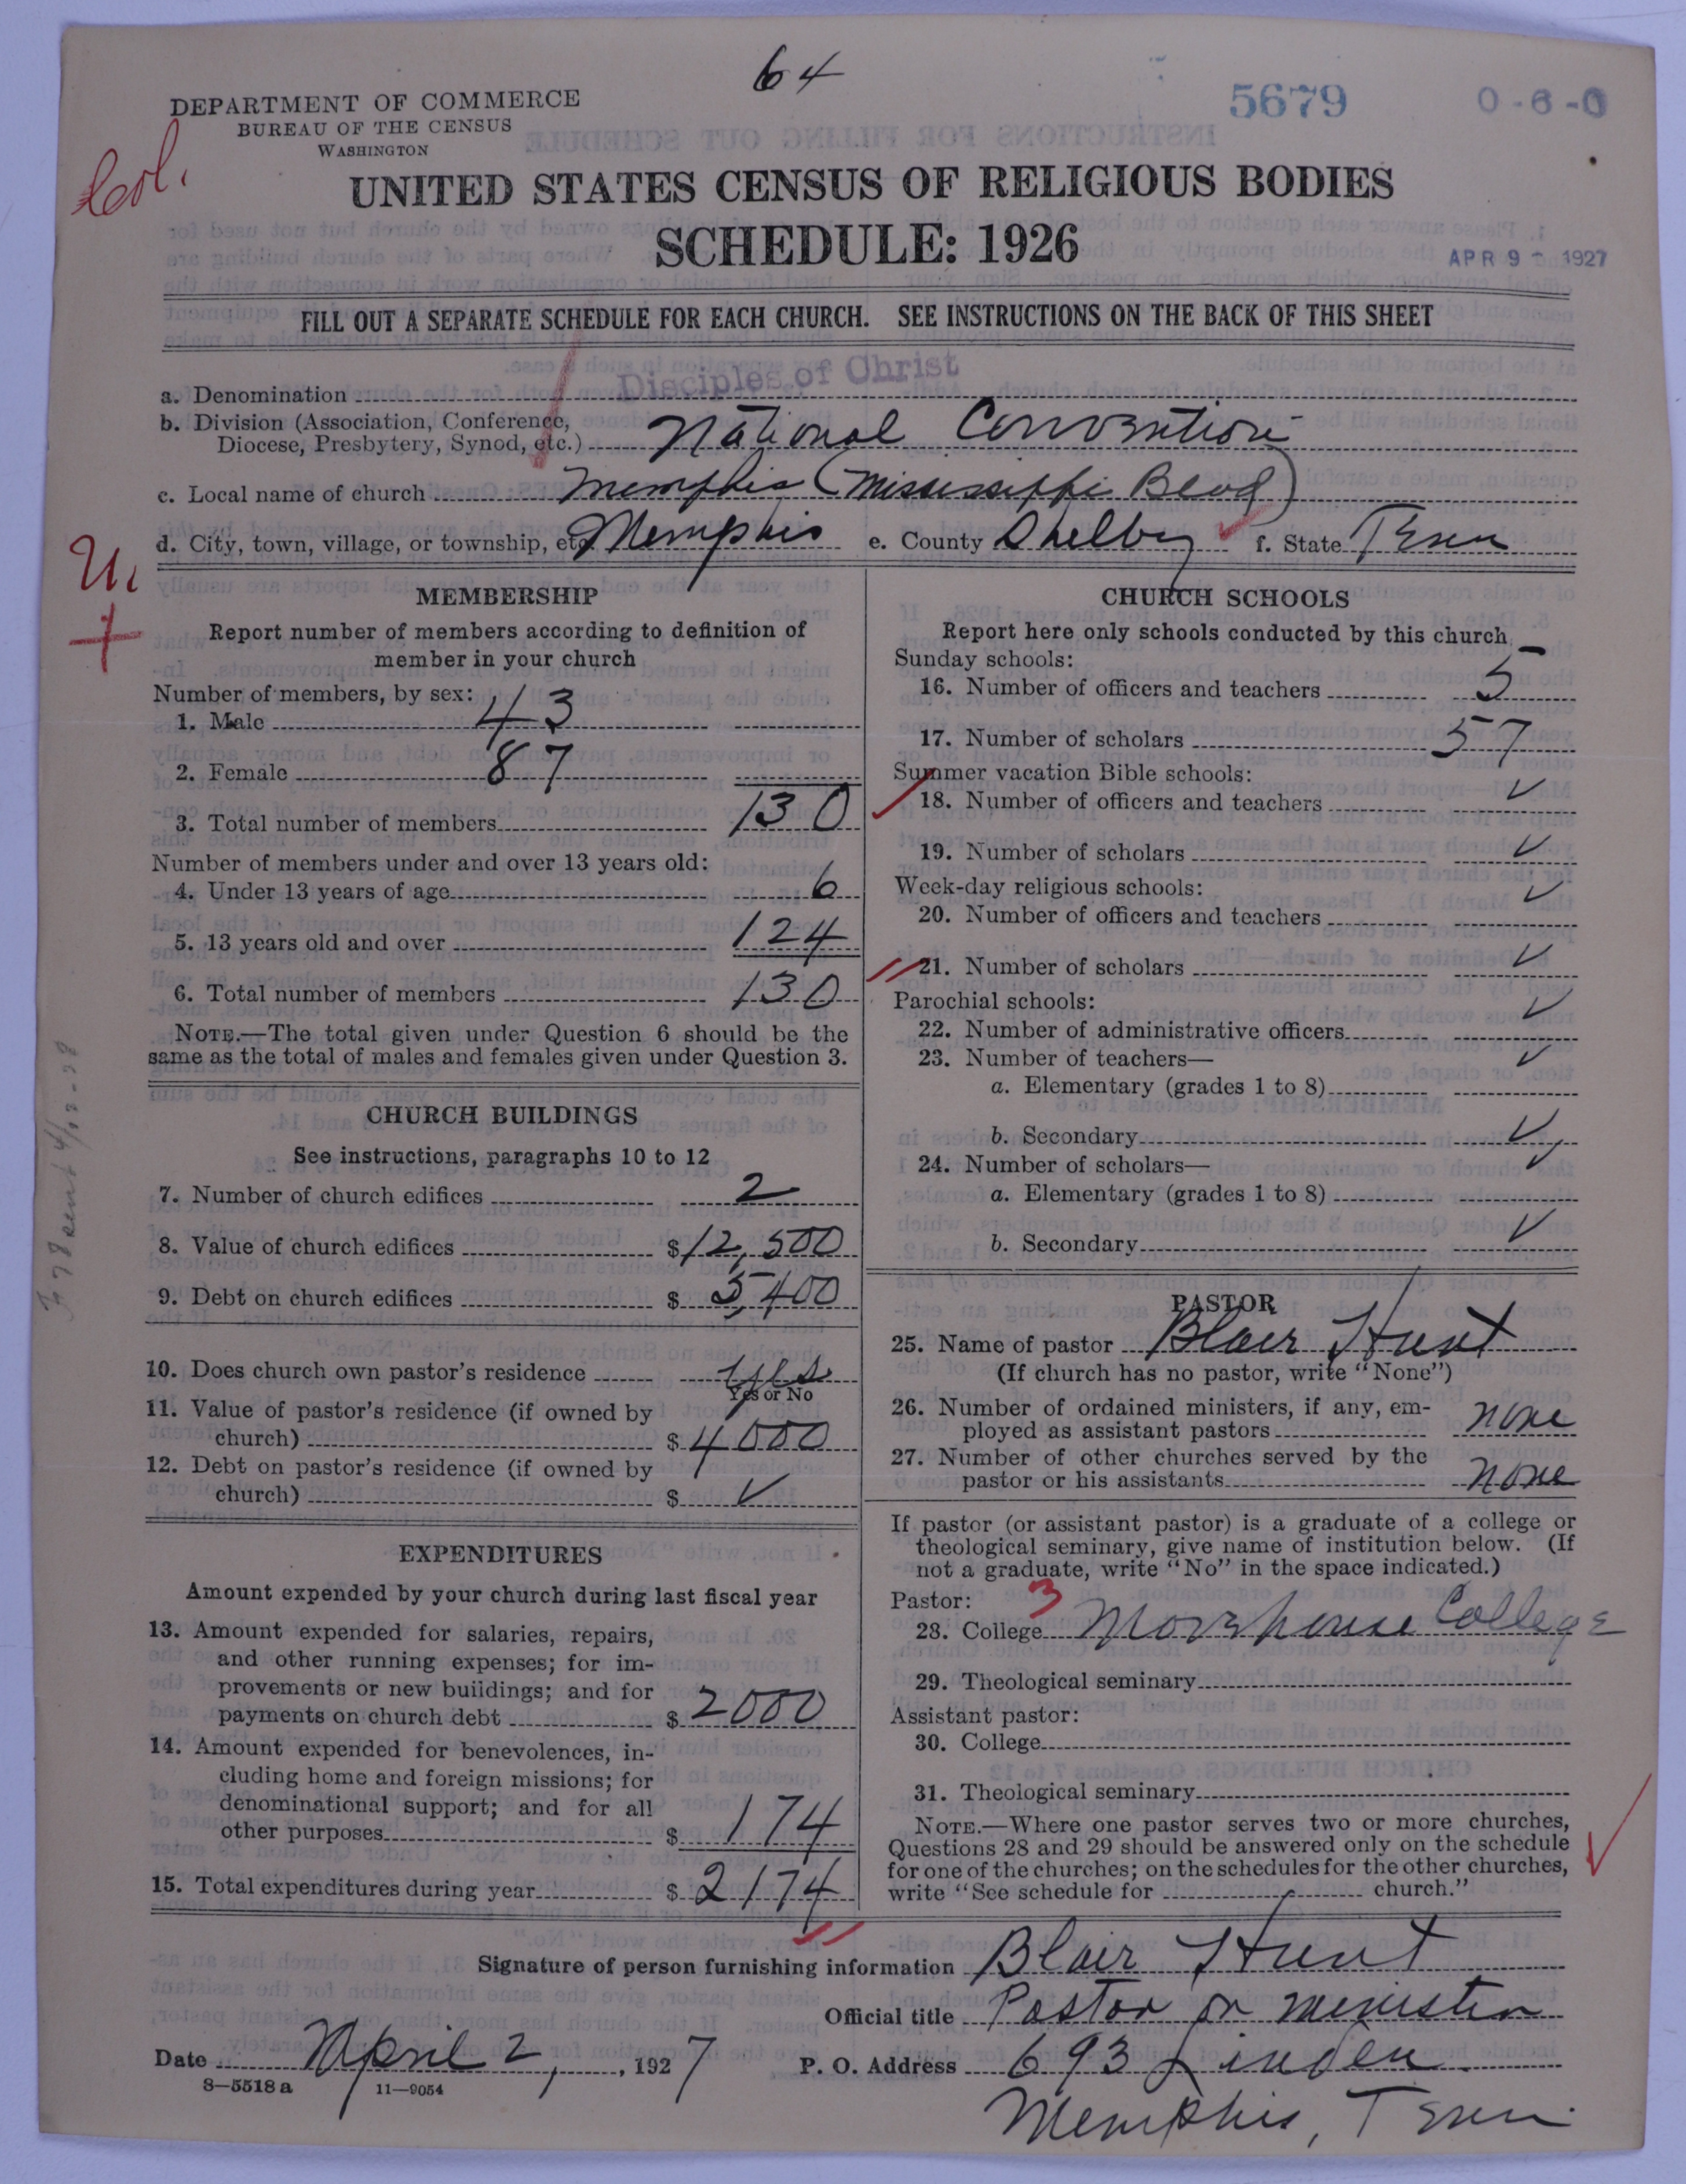 64
5679
0-6-0
DEPARTMENT OF COMMERCE
BUREAU OF THE CENSUS
WASHINGTON
Col.
UNITED STATES CENSUS OF RELIGIOUS BODIES
SCHEDULE: 1926
APR 9 - 1927
FILL OUT A SEPARATE SCHEDULE FOR EACH CHURCH. SEE INSTRUCTIONS ON THE BACK OF THIS SHEET
a. Denomination Disciples of Christ
b. Division (Association, Conference,
Diocese, Presbytery, Synod, etc.) National Convention
c. Local name of church Memphis (Mississippi Blvd)
d. City, town, village, or township, etc. Memphis e. County Shelby f. State Tenn
U.
+
MEMBERSHIP
Report number of members according to definition of
member in your church
Number of members, by sex:
1. Male 43
2. Female 87
3. Total number of members 130
Number of members under and over 13 years old:
4. Under 13 years of age 6
5. 13 years old and over 124
6. Total number of members 130
NOTE.—The total given under Question 6 should be the
same as the total of males and females given under Question 3.
CHURCH BUILDINGS
See instructions, paragraphs 10 to 12
7. Number of church edifices 2
8. Value of church edifices $12,500
9. Debt on church edifices $5,400
10. Does church own pastor's residence Yes
Yes or No
11. Value of pastor's residence (if owned by
church) $4000
12. Debt on pastor's residence (if owned by
church) $ ✓
EXPENDITURES
Amount expended by your church during last fiscal year
13. Amount expended for salaries, repairs,
and other running expenses; for im-
provements or new buildings; and for
payments on church debt $2000
14. Amount expended for benevolences, in-
cluding home and foreign missions; for
denominational support; and for all
other purposes $174
15. Total expenditures during year $2174
CHURCH SCHOOLS
Report here only schools conducted by this church
Sunday schools:
16. Number of officers and teachers 5
17. Number of scholars 57
Summer vacation Bible schools:
18. Number of officers and teachers ✓
19. Number of scholars ✓
Week-day religious schools:
20. Number of officers and teachers ✓
21. Number of scholars ✓
Parochial schools:
22. Number of administrative officers ✓
23. Number of teachers—
a. Elementary (grades 1 to 8) ✓
b. Secondary ✓
24. Number of scholars—
a. Elementary (grades 1 to 8) ✓
b. Secondary ✓
PASTOR
25. Name of pastor Blair Hunt
(If church has no pastor, write "None")
26. Number of ordained ministers, if any, em-
ployed as assistant pastors none
27. Number of other churches served by the
pastor or his assistants none
If pastor (or assistant pastor) is a graduate of a college or
theological seminary, give name of institution below. (If
not a graduate, write "No" in the space indicated.)
Pastor: 3
28. College Morehouse College
29. Theological seminary
Assistant pastor:
30. College
31. Theological seminary
NOTE.—Where one pastor serves two or more churches,
Questions 28 and 29 should be answered only on the schedule
for one of the churches; on the schedules for the other churches,
write "See schedule for church."
Signature of person furnishing information Blair Hunt
Official title Pastor or minister
Date April 2, 1927 P. O. Address 693 Linden
8—5518 a 11—9054
Memphis, Tenn.